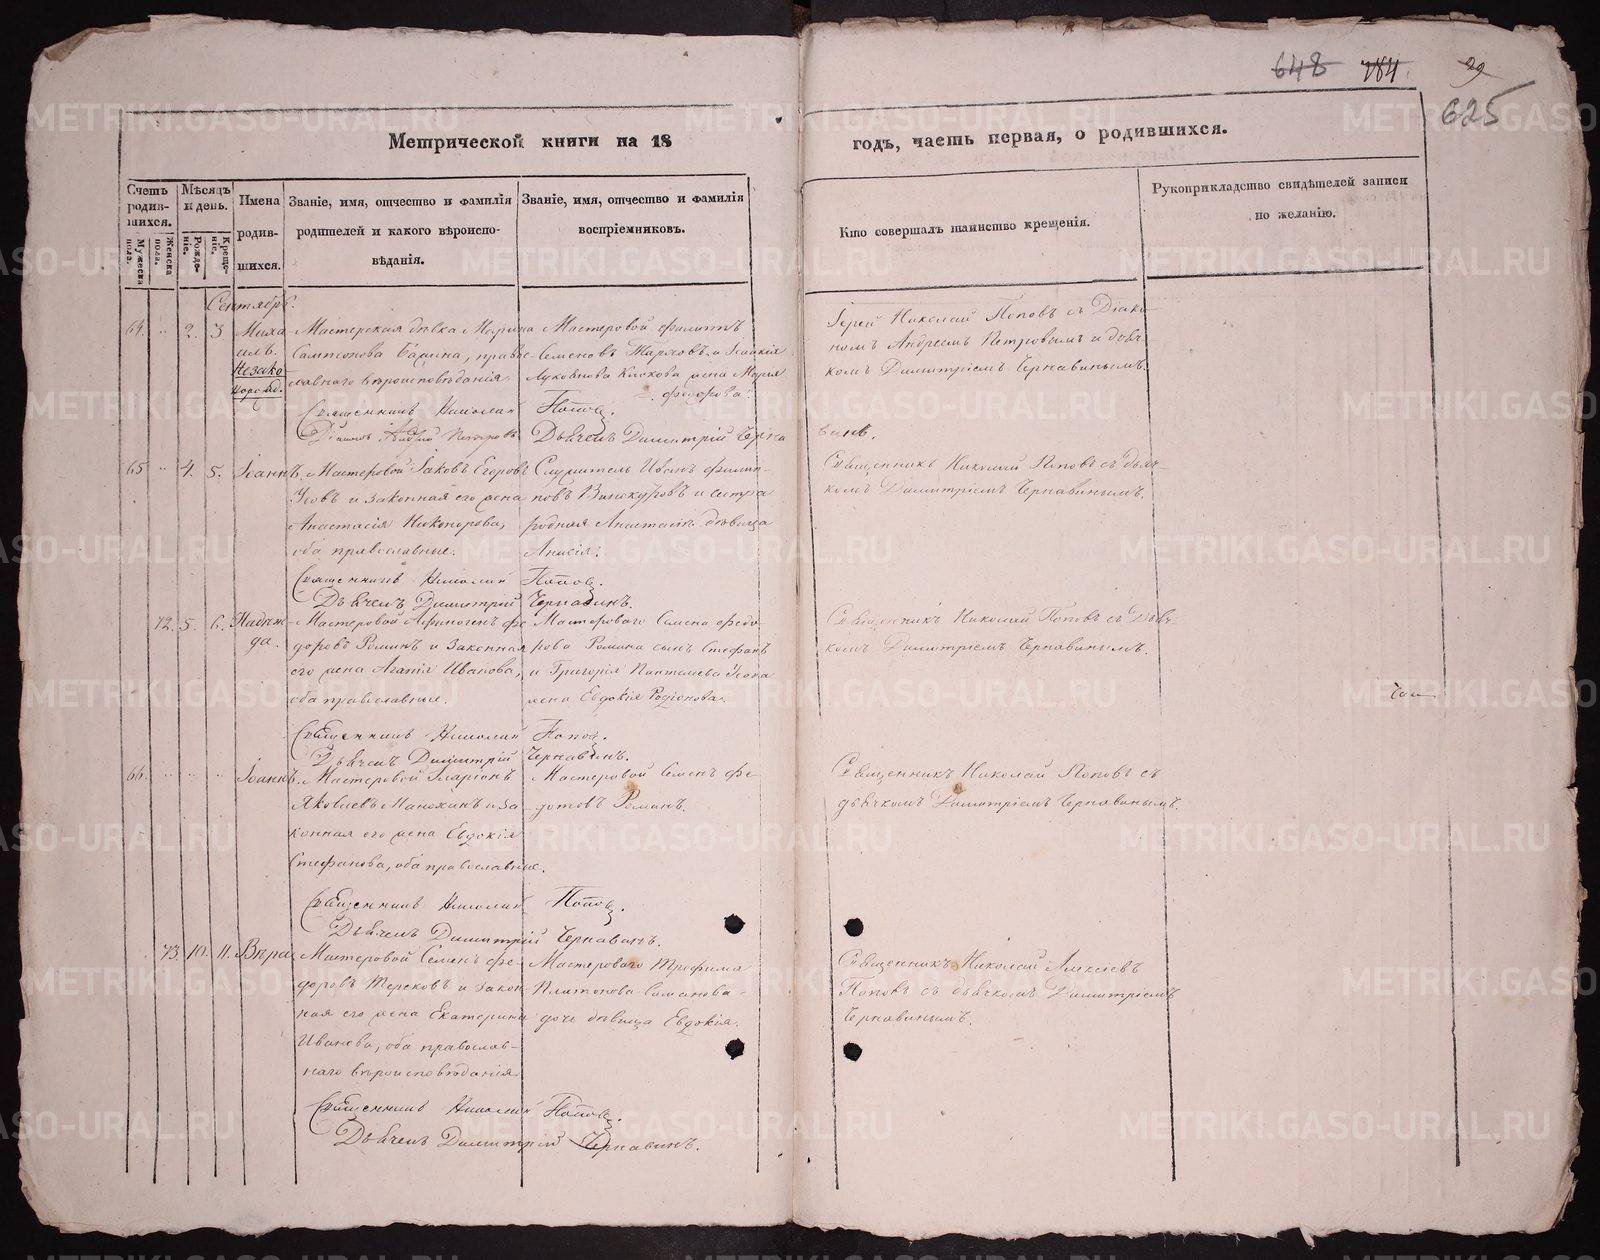 648 784 29
625
Метрической книги на 18 годъ, часть первая, о родившихся.
Счетъ родившихся.
Мужеска пола.
Женска пола.
Мѣсяцъ и день.
Рожденіе.
Крещеніе.
Имена родившихся.
Званіе, имя, отчество и фамилія родителей и какого вѣроисповѣданія.
Званіе, имя, отчество и фамилія воспріемниковъ.
Кто совершалъ таинство крещенія.
Рукоприкладство свидѣтелей записи по желанію.
Сентябрь.
64. 2. 3 Михаилъ. Незаконорожд.
Мастерская дѣвка Марина
Сампсонова, право-
славнаго вѣроисповѣданія.
Мастеровой Филиппъ
Семеновъ
жена Марья
Федорова.
Іерей Николай Поповъ съ Діако-
номъ Андреемъ Петровымъ и дьяч-
комъ Димитріемъ Чернавинымъ.
Священникъ Николай Поповъ.
Діаконъ Андрей Петровъ Дьячекъ Димитрій Черна
винъ.
65 4. 5. Іоаннъ.
Мастеровой Іаковъ Егоровъ
Усовъ и законная его жена
Анастасія Никонорова,
оба православные.
Служитель Иванъ Филип-
повъ Винокуровъ и сестра
родная дѣвица
Анисія.
Священникъ Николай Поповъ съ дьяч-
комъ Димитріемъ Чернавинымъ.
Священникъ Николай Поповъ.
Дьячекъ Димитрій Чернавинъ.
72. 5. 6. Надежда.
Мастеровой Афиногенъ Фе
доровъ Роминъ и законная
его жена Агапія Иванова,
оба православные.
Мастероваго Семена Федо-
рова Ромина сынъ Стефанъ
и Григорія Пантелеева
жена Евдокія Родіонова.
Священникъ Николай Поповъ съ Дьяч-
комъ Димитріемъ Чернавинымъ.
Священникъ Николай Поповъ.
Дьячекъ Димитрій Чернавинъ.
66. Іоаннъ.
Мастеровой Иларіонъ
Яковлевъ Манохинъ и за-
конная его жена Евдокія
Стефанова, оба православные.
Мастеровой Семенъ Фе-
дотовъ Роминъ.
Священникъ Николай Поповъ съ
дьячкомъ Димитріемъ Чернавинымъ.
Священникъ Николай Поповъ.
Дьячекъ Димитрій Чернавинъ.
73. 10. 11. Вѣра.
Мастеровой Семенъ Фе-
доровъ Терековъ и закон-
ная его жена Екатерина
Иванова, оба православ-
наго вѣроисповѣданія.
Мастероваго Трофима
Платонова
дочь дѣвица Евдокія.
Священникъ Николай Алексѣевъ
Поповъ съ дьячкомъ Димитріемъ
Чернавинымъ.
Священникъ Николай Поповъ.
Дьячекъ Димитрій Чернавинъ.
METRIKI.GASO-URAL.RU